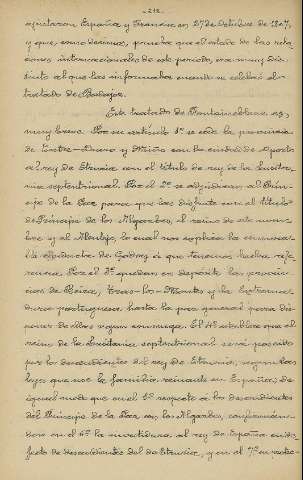 - 212 -
ajustaron España y Francia en 27 de Octubre de 1807,
y que, como decimos, prueba que el estado de las rela-
ciones internacionales de este período, era muy dis-
tinto al que las informaba cuando se celebró el
tratado de Badajoz.
Este tratado de Fontainebleau es,
muy breve. Por su artículo 1º se cede la provincia
de Entre-Duero y Miño con la ciudad de Oporto
al rey de Etruria con el título de rey de la Lusita-
nia septentrional. Por el 2º se adjudican al Prín-
cipe de la Paz para que las disfrute con el título
de Príncipe de los Algarbes, el reino de este nom-
bre y el Alentejo, lo cual nos explica la
conducta de Godoy a que tenemos hecha refe-
rencia. Por el 3º quedan en depósito las provin-
cias de Beira, Tras-los-Montes y la Extrema-
dura portuguesa, hasta la paz general para dis-
poner de ellas según convenga. El 4º establece que el
reino de la Lusitania septentrional será poseído
por los descendientes del rey de Etruria, según las
leyes que usa la familia reinante en España; de
igual modo que en el 5º respecto a los descendientes
del Príncipe de la Paz en los Algarbes, conformán-
dose en el 6º la investidura al rey de España en de-
fecto de descendientes del de Etruria, y en el 7º en